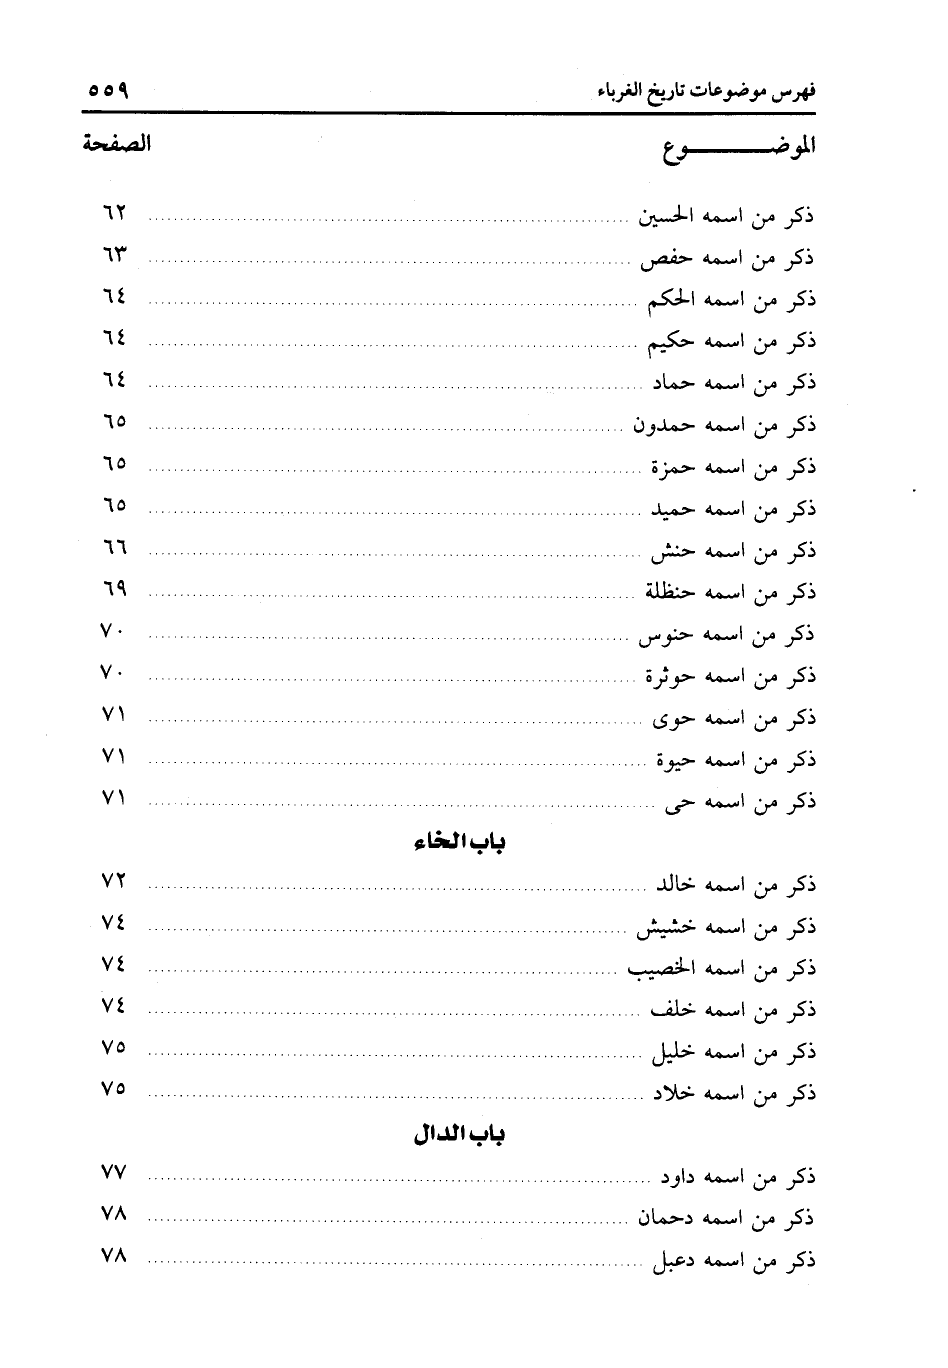 فهرس موضوعات تاريخ الغرباء ٥٥٩
الموضـــــــوع الصفحة
ذكر من اسمه الحسين ........ ٦٢
ذكر من اسمه حفص ........ ٦٣
ذكر من اسمه الحكم ........ ٦٤
ذكر من اسمه حكيم ........ ٦٤
ذكر من اسمه حماد ........ ٦٤
ذكر من اسمه حمدون ........ ٦٥
ذكر من اسمه حمزة ........ ٦٥
ذكر من اسمه حميد ........ ٦٥
ذكر من اسمه حنش ........ ٦٦
ذكر من اسمه حنظلة ........ ٦٩
ذكر من اسمه حنوس ........ ٧٠
ذكر من اسمه حوثرة ........ ٧٠
ذكر من اسمه حوى ........ ٧١
ذكر من اسمه حيوة ........ ٧١
ذكر من اسمه حى ........ ٧١
باب الخاء
ذكر من اسمه خالد ........ ٧٢
ذكر من اسمه خشيش ........ ٧٤
ذكر من اسمه الخصيب ........ ٧٤
ذكر من اسمه خلف ........ ٧٤
ذكر من اسمه خليل ........ ٧٥
ذكر من اسمه خلاد ........ ٧٥
باب الدال
ذكر من اسمه داود ........ ٧٧
ذكر من اسمه دحمان ........ ٧٨
ذكر من اسمه دعبل ........ ٧٨